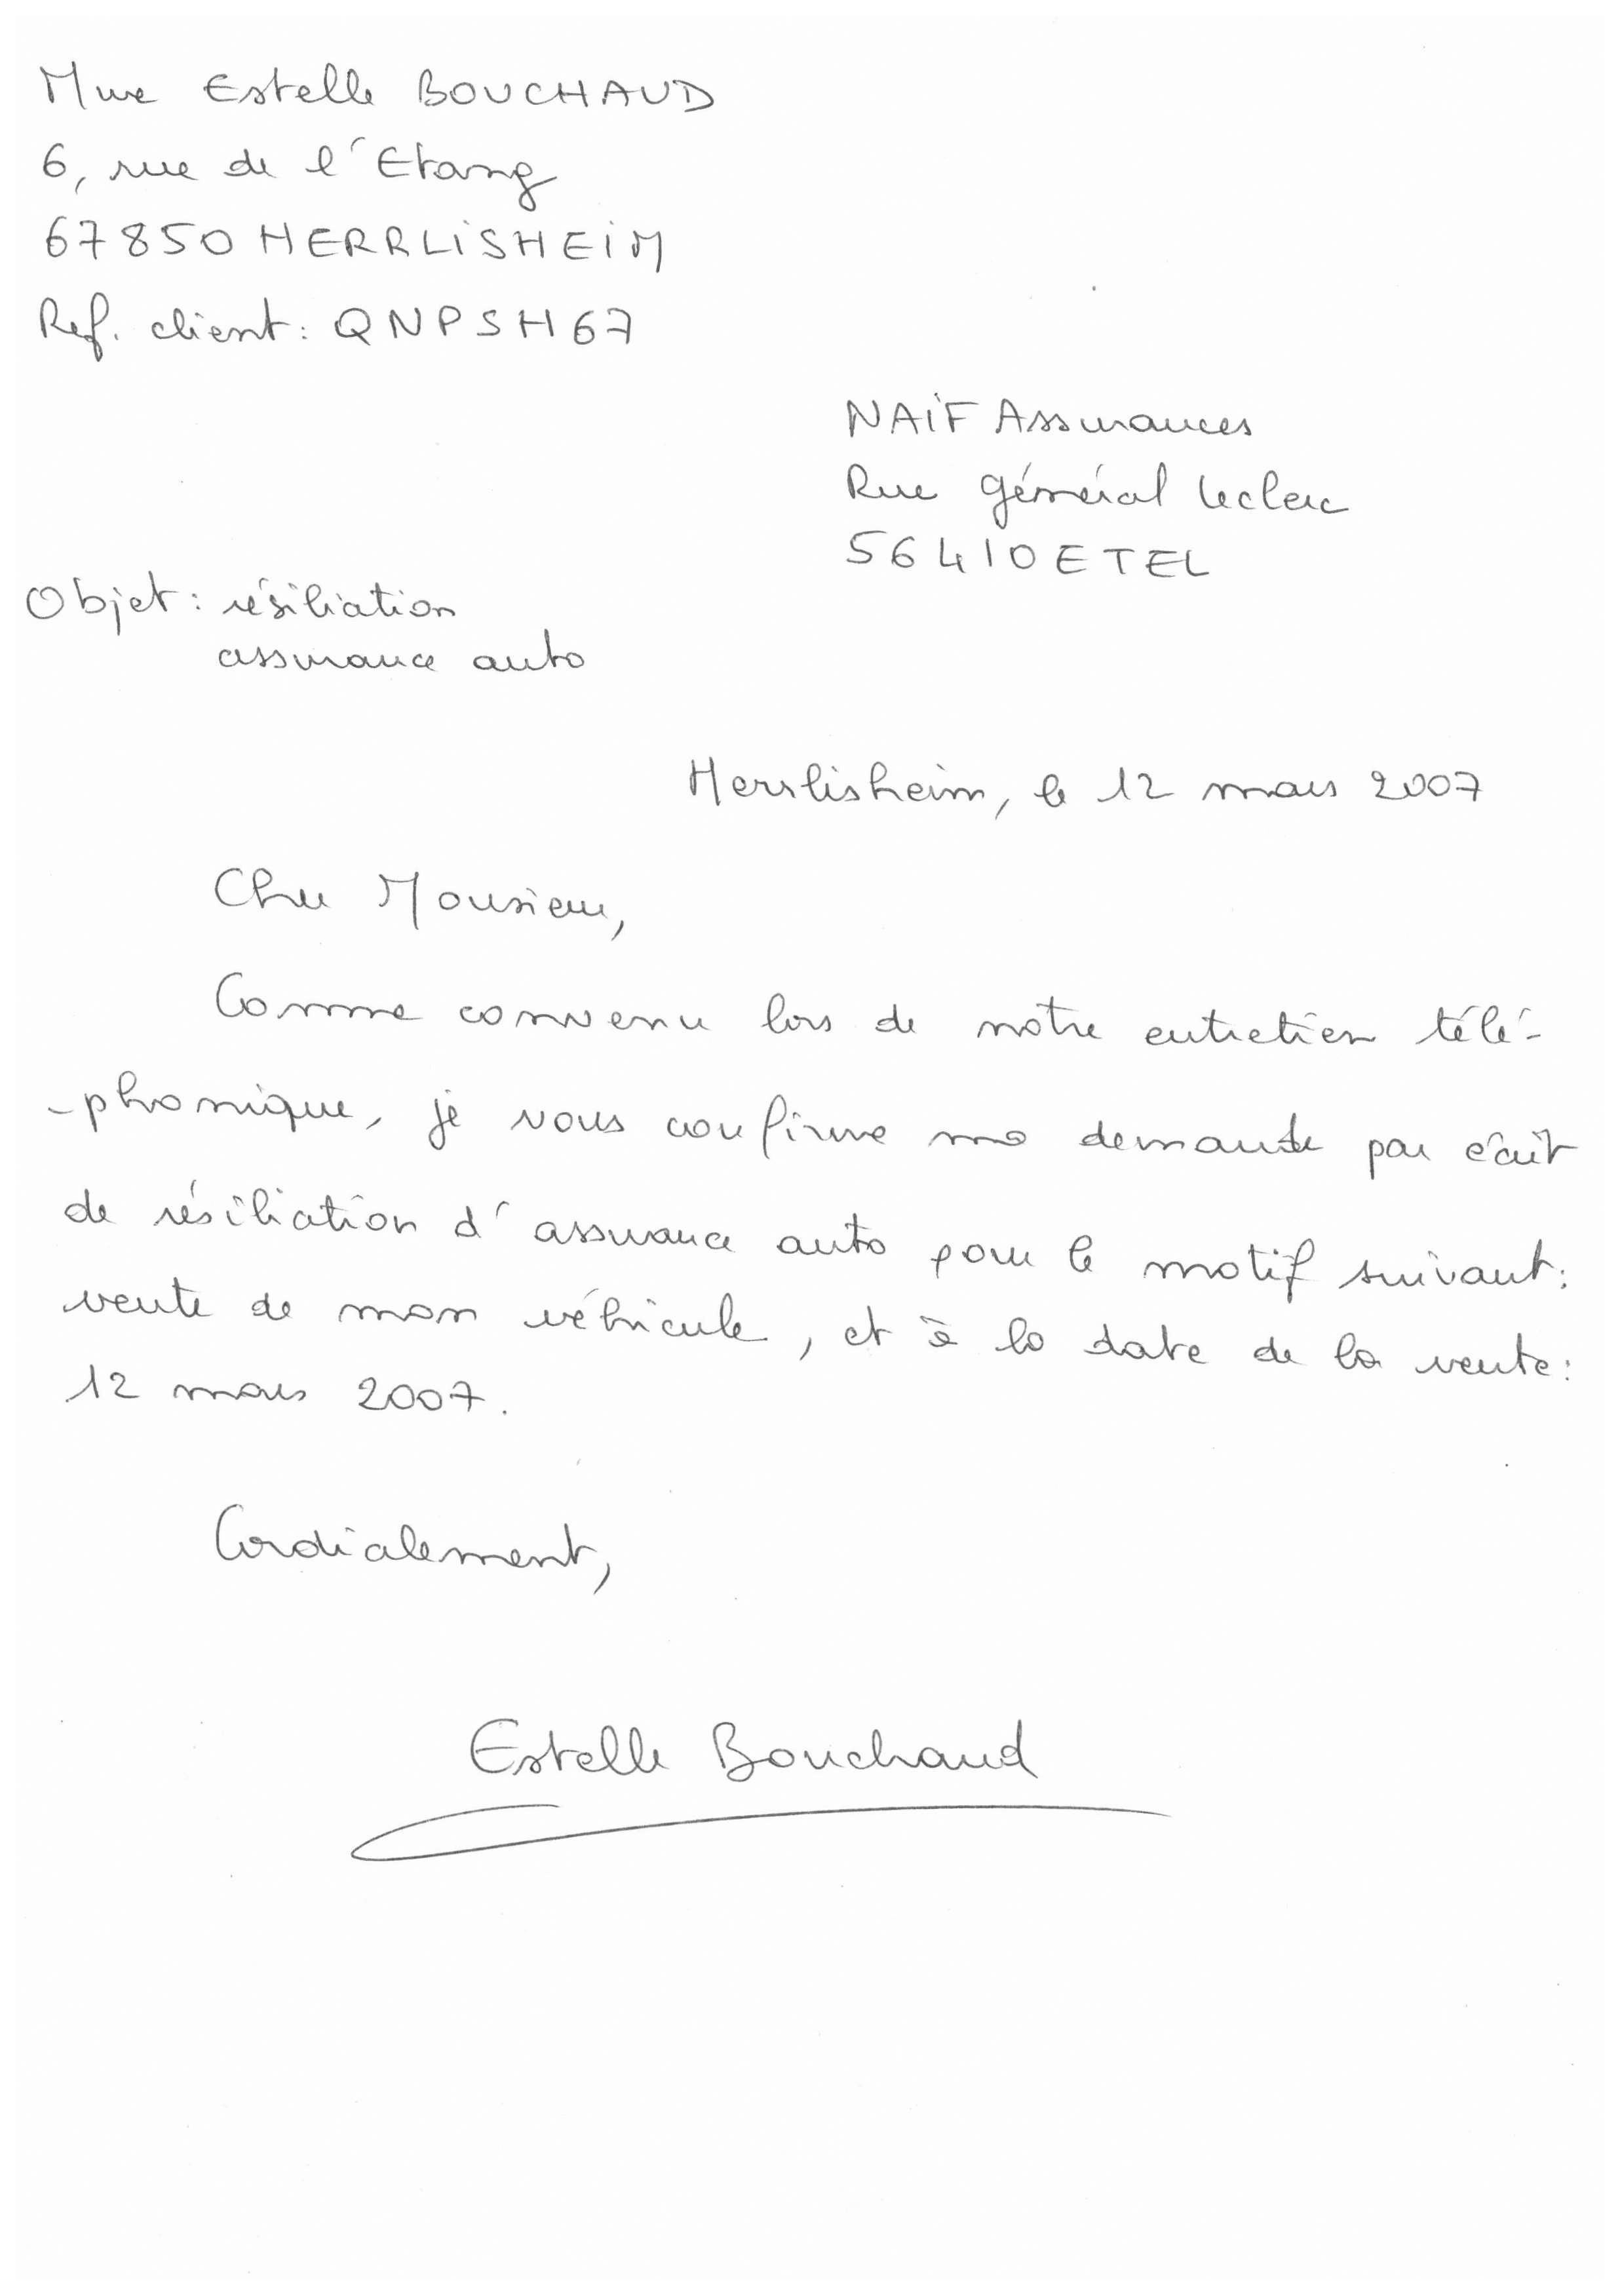 Mme Estelle BOUCHAUD
6, rue de l'Etang
67850 HERRLISHEIM
Ref. client : QNPSH67
NAIF Assurances
Rue général Leclerc
56410 ETEL
Objet : résiliation
assurance auto
Herrlisheim, le 12 mars 2007
Cher Monsieur,
Comme convenu lors de notre entretien télé-
-phonique, je vous confirme ma demande par écrit
de résiliation d'assurance auto pour le motif suivant:
vente de mon véhicule, et à la date de la vente:
12 mars 2007.
Cordialement,
Estelle Bouchaud